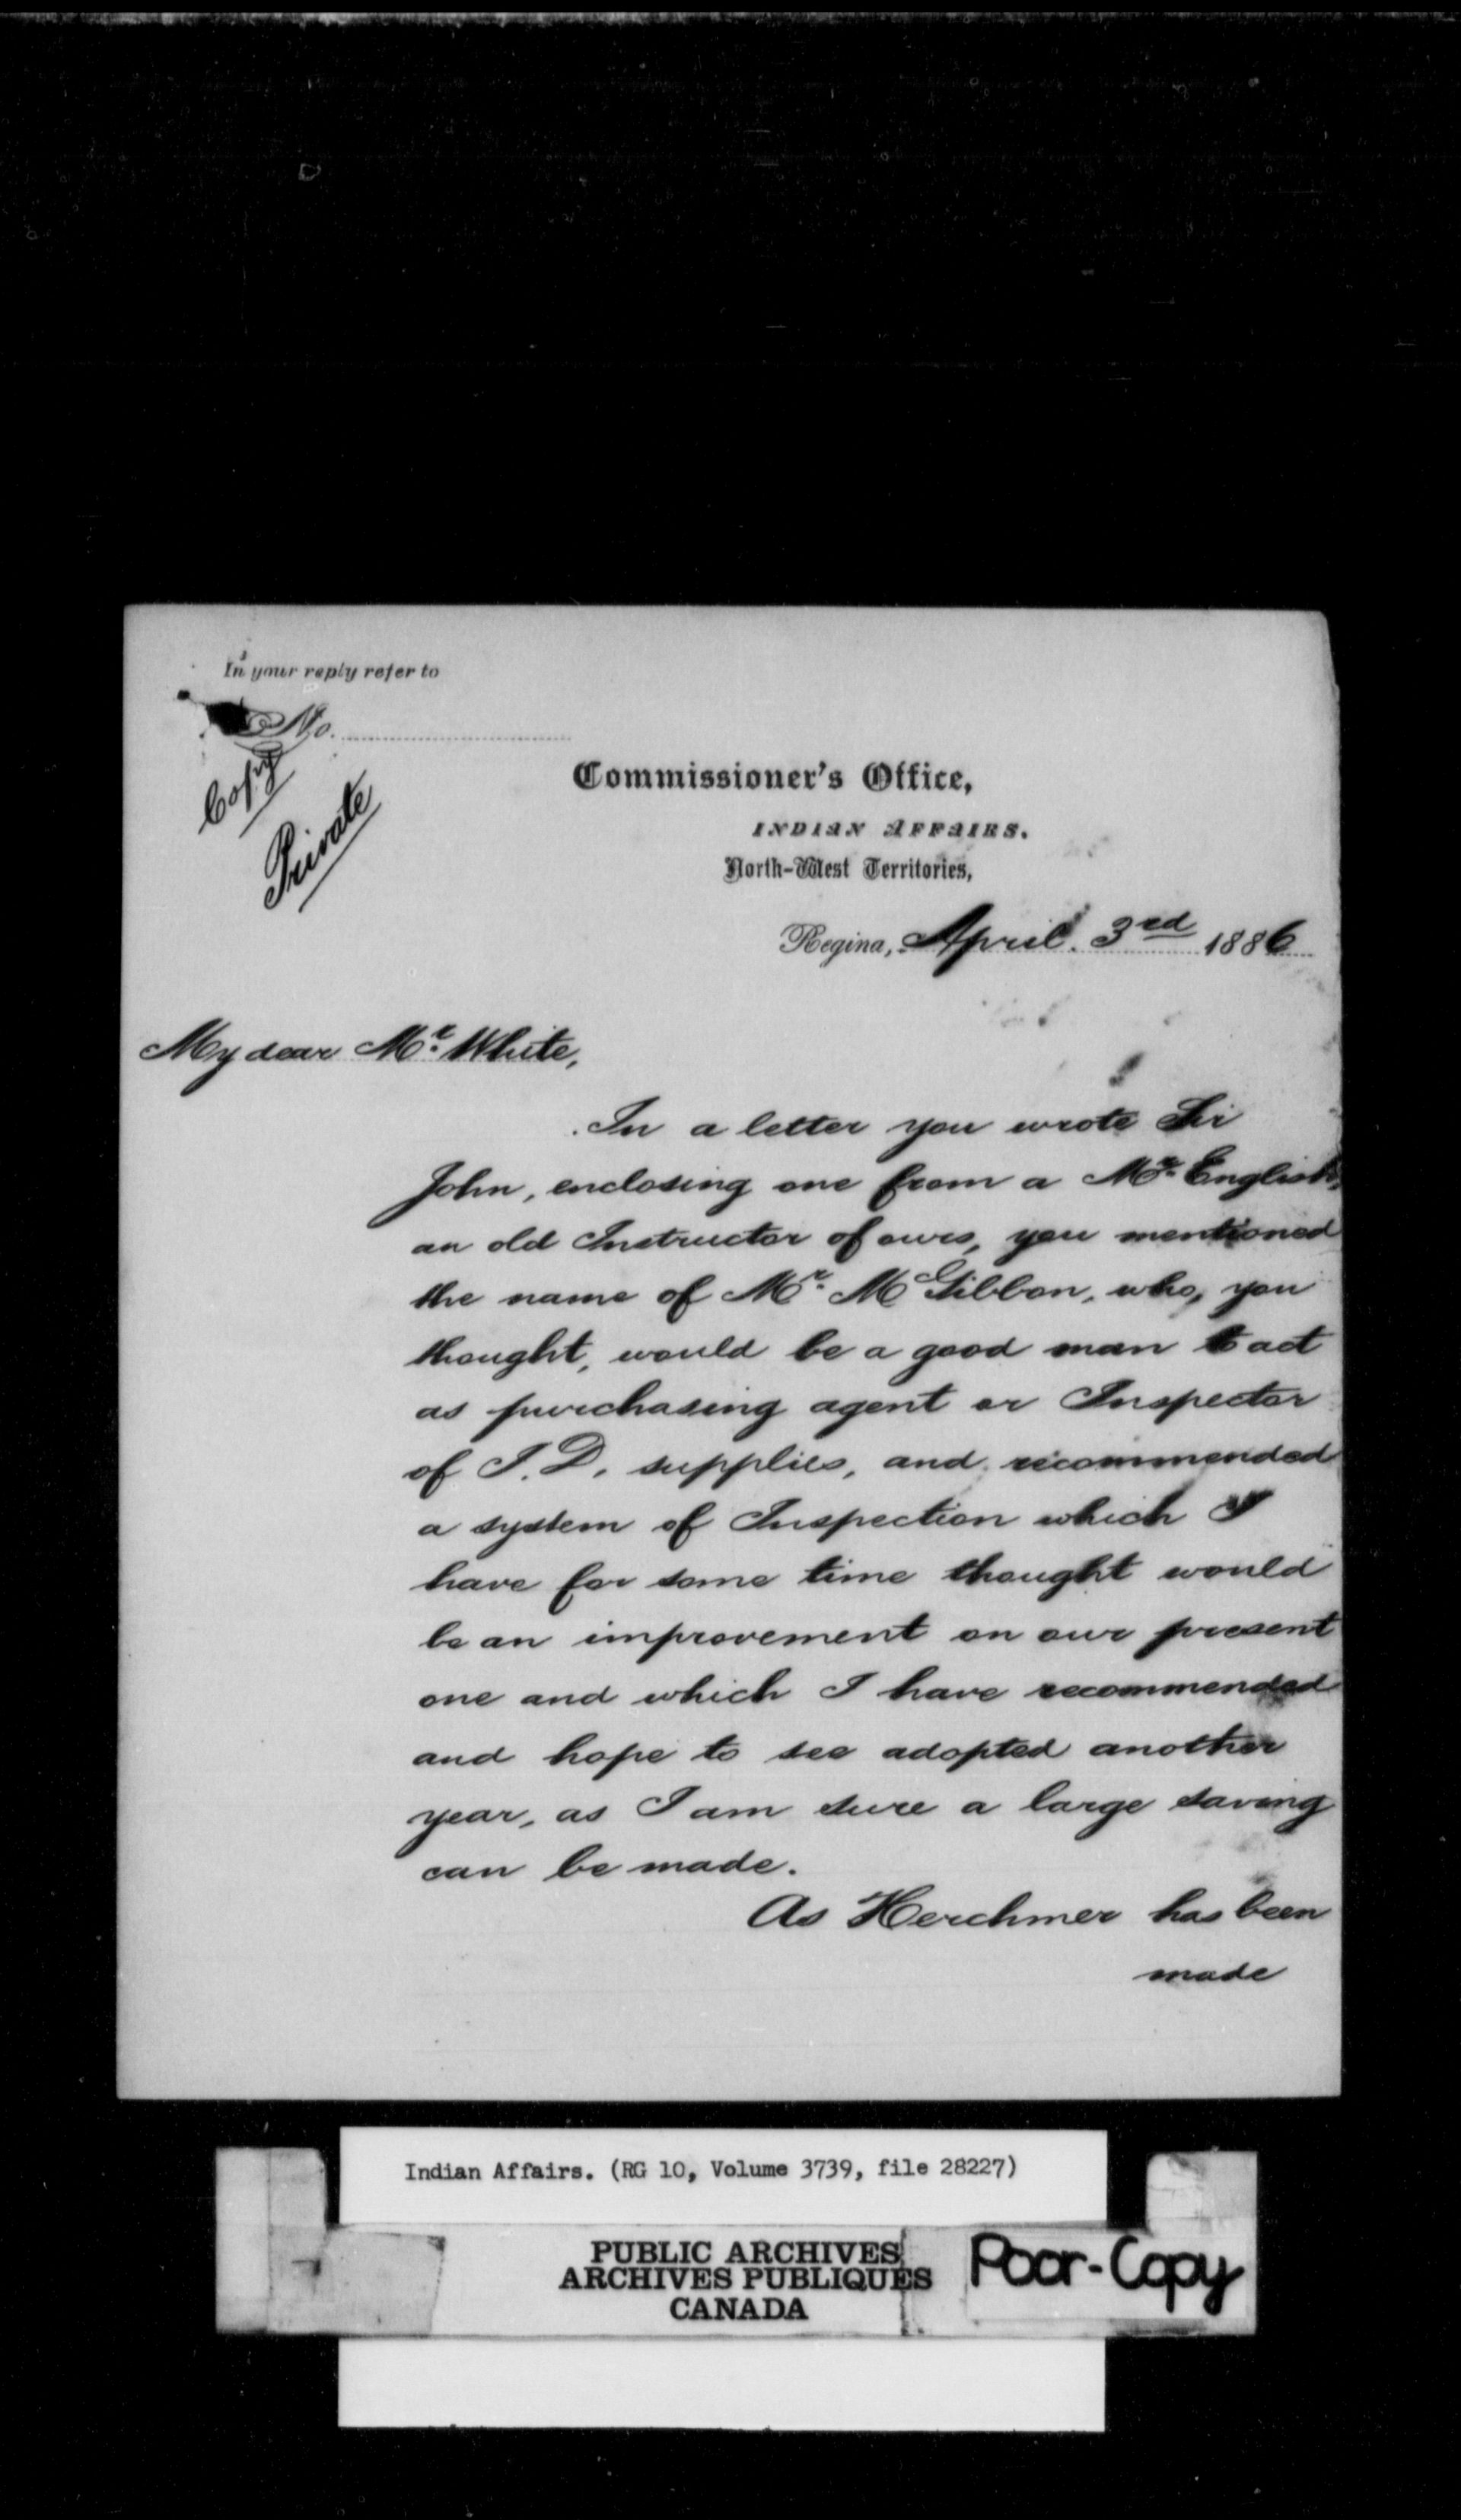 In your reply refer to
No.
Copy
Private
Commissioner's Office,
INDIAN AFFAIRS.
North-West Territories,
Regina, April. 3rd 1886
My dear Mr. White,
In a letter you wrote Sir
John, enclosing one from a Mr. English,
an old Instructor of ours, you mentioned
the name of Mr. McGibbon, who, you
thought, would be a good man to act
as purchasing agent or Inspector
of I.D. supplies, and recommended
a system of Inspection which I
have for some time thought would
be an improvement on our present
one and which I have recommended
and hope to see adopted another
year, as I am sure a large saving
can be made.
As Herchmer has been
made
Indian Affairs. (RG 10, Volume 3739, file 28227)
PUBLIC ARCHIVES
ARCHIVES PUBLIQUES
CANADA
Poor-Copy